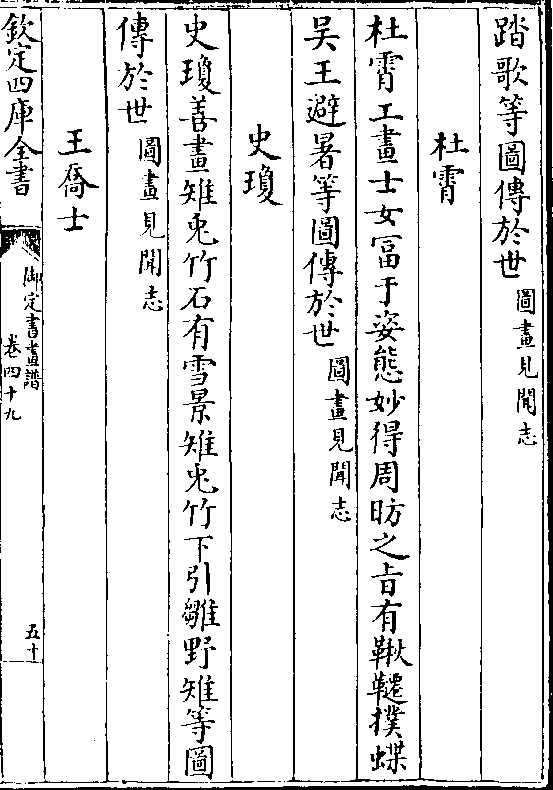 踏歌等圖傳於世圖畫見聞志
杜霄
杜霄工畫士女富于姿態妙得周昉之㫖有鞦韆撲蝶
吳王避暑等圖傳於世圖畫見聞志
史瓊
史瓊善畫雉兎竹石有雪景雉兎竹下引雛野雉等圖
傳於世圖畫見聞志
王喬士
欽定四庫全書
御定書畫譜
卷四十九
五十